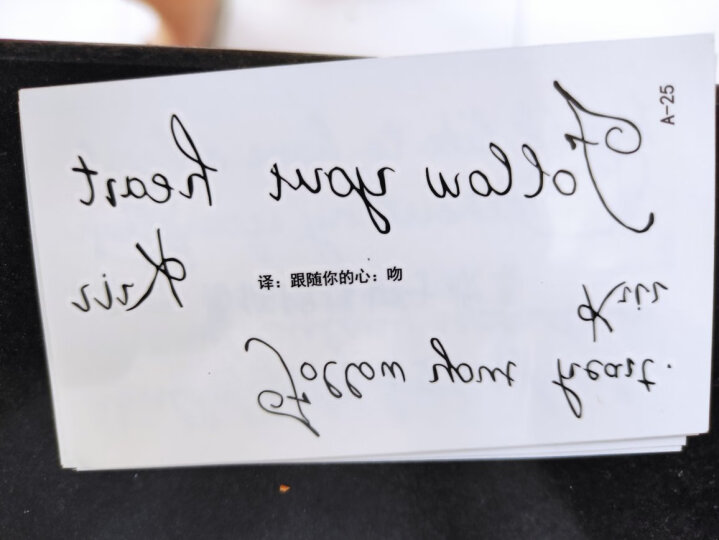 A-25
Follow your heart
Kiss
译：跟随你的心：吻
Kiss
Follow your heart.